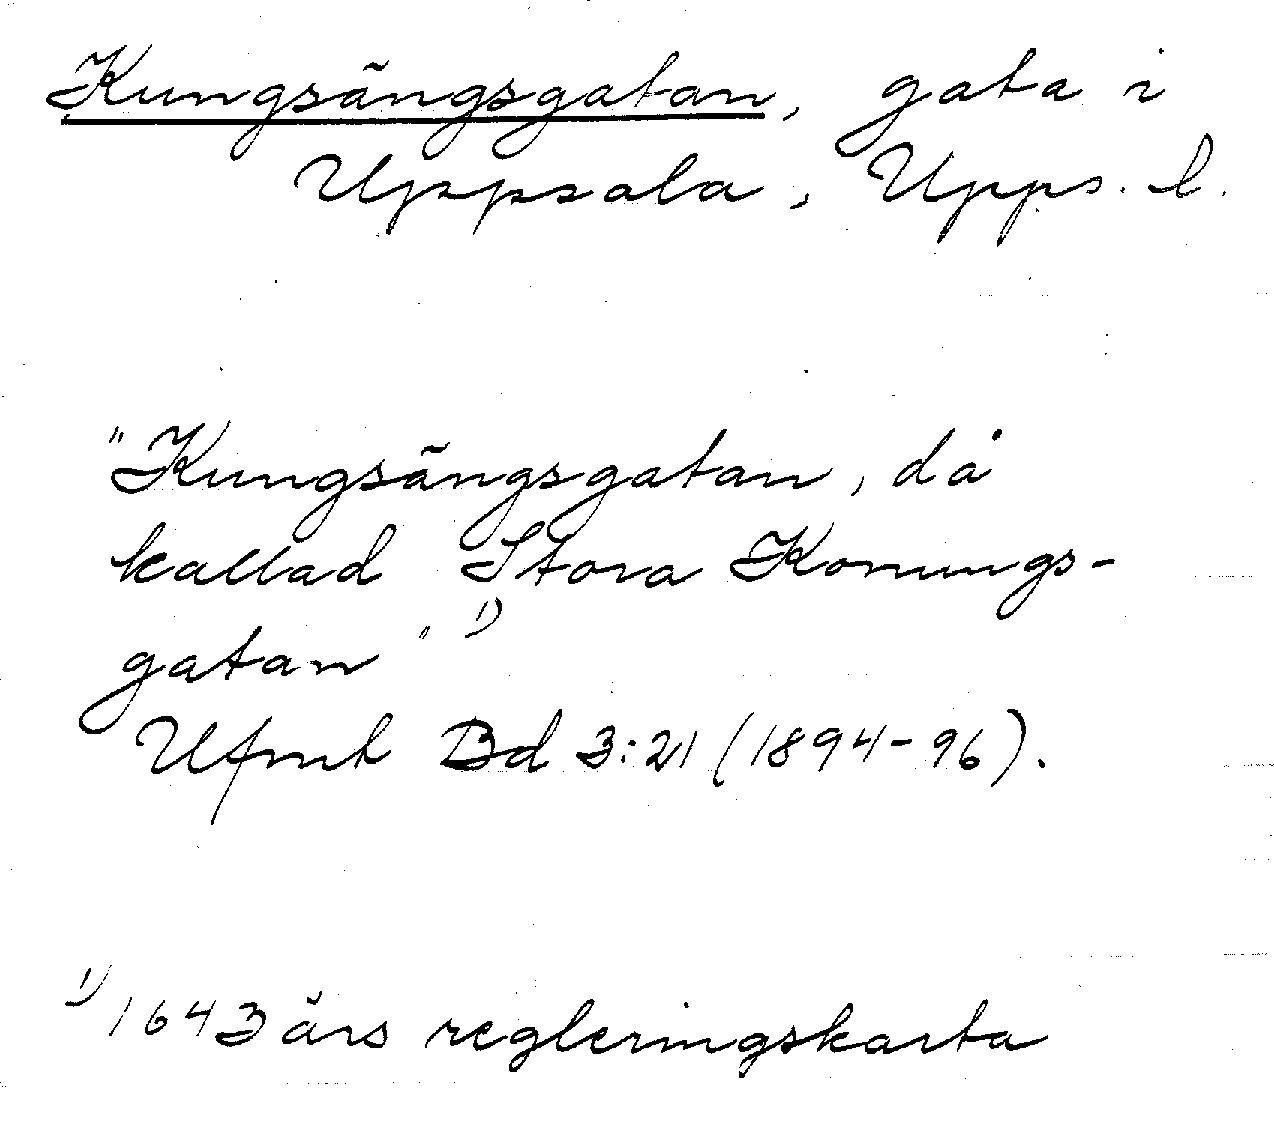 Kungsängsgatan, gata i
Uppsala, Upps. l.
"Kungsängsgatan, då
kallad Stora Konungs-
gatan" 1)
Ufmt Bd 3:21 (1894-96).
1) 1643 års regleringskarta